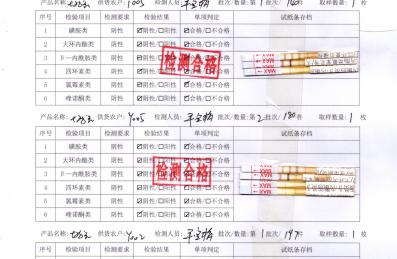 产品名称: 供货农户: Y005 检测人员: 批次/数量:第1批次/ 枚 取样数量:1枚
序号 检验项目 检测要求 检验结果 单项判定 试纸条存档
1 磺胺类 阴性 ☑阴性/☐阳性 ☑合格/☐不合格
2 大环内酯类 阴性 ☑阴性/☐阳性 ☑合格/☐不合格
3 β-内酰胺类 阴性 ☑阴性/☐阳性 ☑合格/☐不合格
4 四环素类 阴性 ☑阴性/☐阳性 ☑合格/☐不合格
5 氯霉素类 阴性 ☑阴性/☐阳性 ☑合格/☐不合格
6 喹诺酮类 阴性 ☑阴性/☐阳性 ☑合格/☐不合格
检测合格
MAX
产品名称: 供货农户: Y005 检测人员: 批次/数量:第2批次/180枚 取样数量:1枚
序号 检验项目 检测要求 检验结果 单项判定 试纸条存档
1 磺胺类 阴性 ☑阴性/☐阳性 ☑合格/☐不合格
2 大环内酯类 阴性 ☑阴性/☐阳性 ☑合格/☐不合格
3 β-内酰胺类 阴性 ☑阴性/☐阳性 ☑合格/☐不合格
4 四环素类 阴性 ☑阴性/☐阳性 ☑合格/☐不合格
5 氯霉素类 阴性 ☑阴性/☐阳性 ☑合格/☐不合格
6 喹诺酮类 阴性 ☑阴性/☐阳性 ☑合格/☐不合格
检测合格
MAX
MAX
MAX
产品名称: 供货农户: Y002 检测人员: 批次/数量:第1批次/ 枚 取样数量:1枚
序号 检验项目 检测要求 检验结果 单项判定 试纸条存档